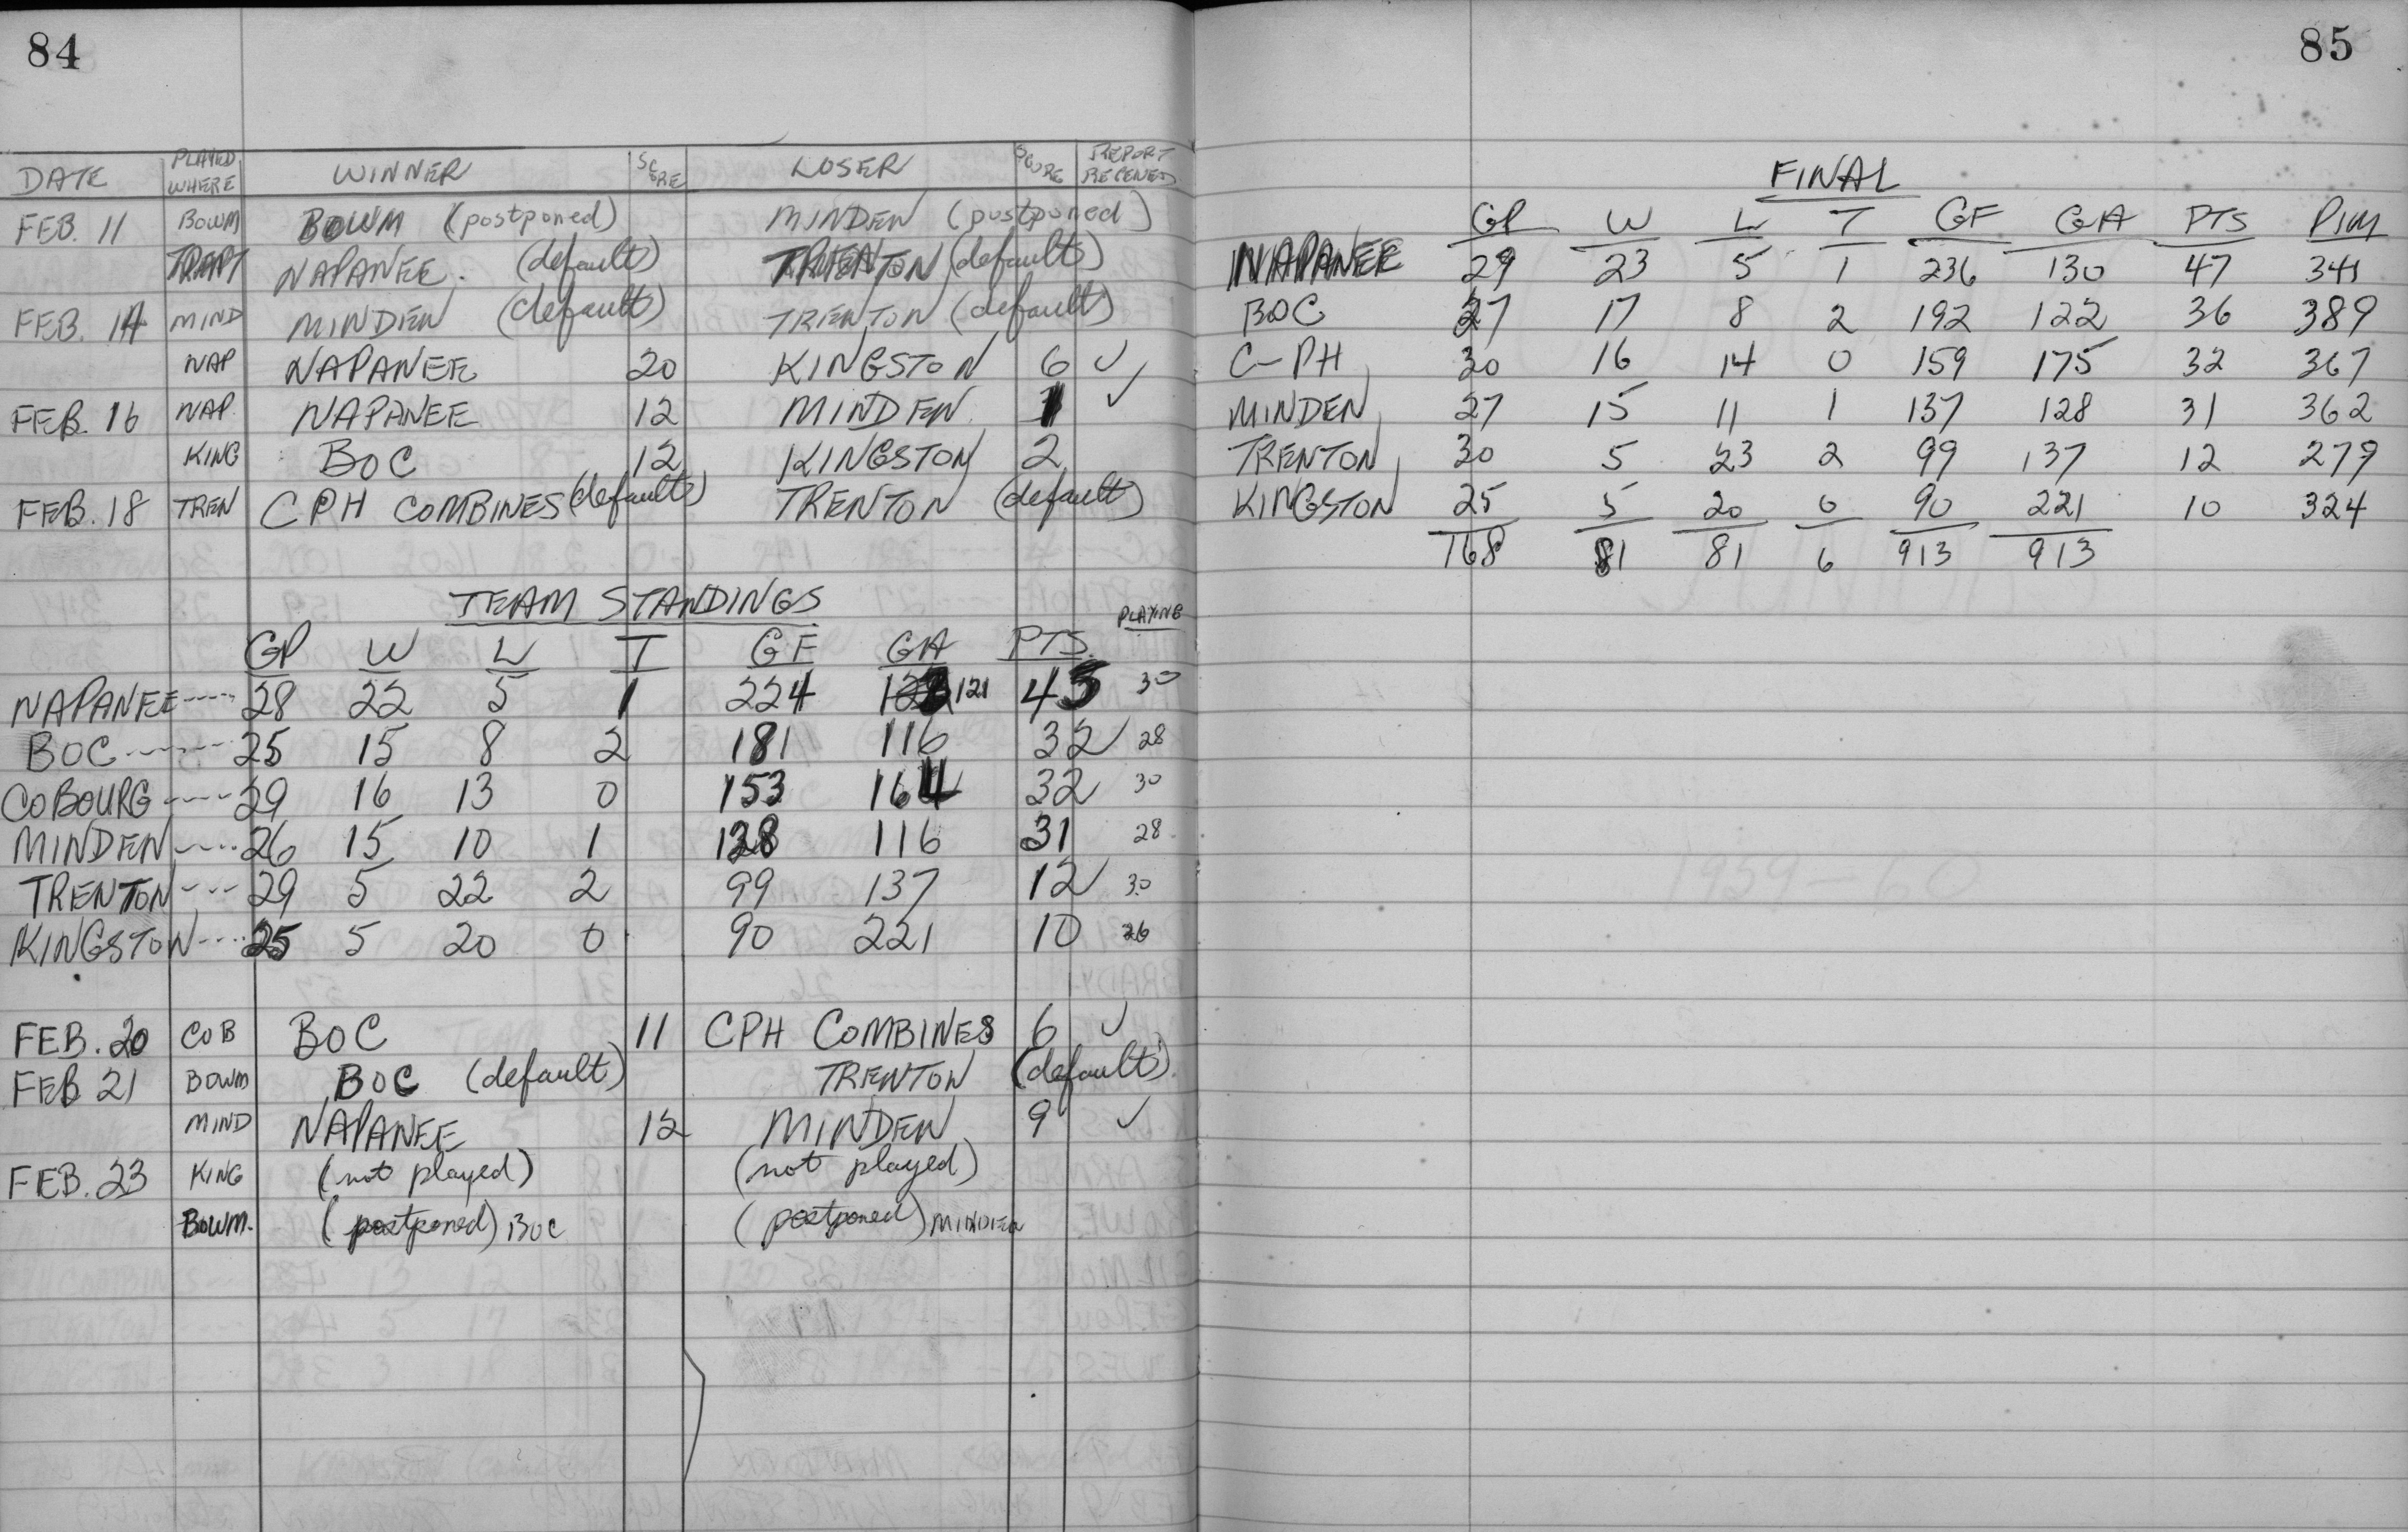 84
DATE PLAYED WHERE WINNER SCORE LOSER SCORE REPORT RECEIVED
FEB. 11 BOWM BOWM (postponed) MINDEN (postponed)
NAPANEE. (default) TRENTON (default)
FEB. 14 MIND MINDEN (default) TRENTON (default)
NAP NAPANEE 20 KINGSTON 6 ✓
FEB. 16 NAP. NAPANEE 12 MINDEN 1 ✓
KING BOC 12 KINGSTON 2
FEB. 18 TREN CPH COMBINES (default) TRENTON (default)
TEAM STANDINGS
GP W L T GF GA PTS. PLAYING
NAPANEE ---- 28 22 5 1 224 121 45 30
BOC ---- 25 15 8 2 181 116 32 28
COBOURG ---- 29 16 13 0 153 164 32 30
MINDEN ---- 26 15 10 1 128 116 31 28
TRENTON ---- 29 5 22 2 99 137 12 30
KINGSTON ---- 25 5 20 0 90 221 10 26
FEB. 20 COB BOC 11 CPH COMBINES 6 ✓
FEB 21 BOWM BOC (default) TRENTON (default)
MIND NAPANEE 12 MINDEN 9 ✓
FEB. 23 KING (not played) (not played)
BOWM. (postponed) BOC (postponed) MINDEN
85
FINAL
GP W L T GF GA PTS PIM
NAPANEE 29 23 5 1 236 130 47 341
BOC 27 17 8 2 192 122 36 389
C-PH 30 16 14 0 159 175 32 367
MINDEN 27 15 11 1 137 128 31 362
TRENTON 30 5 23 2 99 137 12 279
KINGSTON 25 5 20 0 90 221 10 324
168 81 81 6 913 913
1959-60